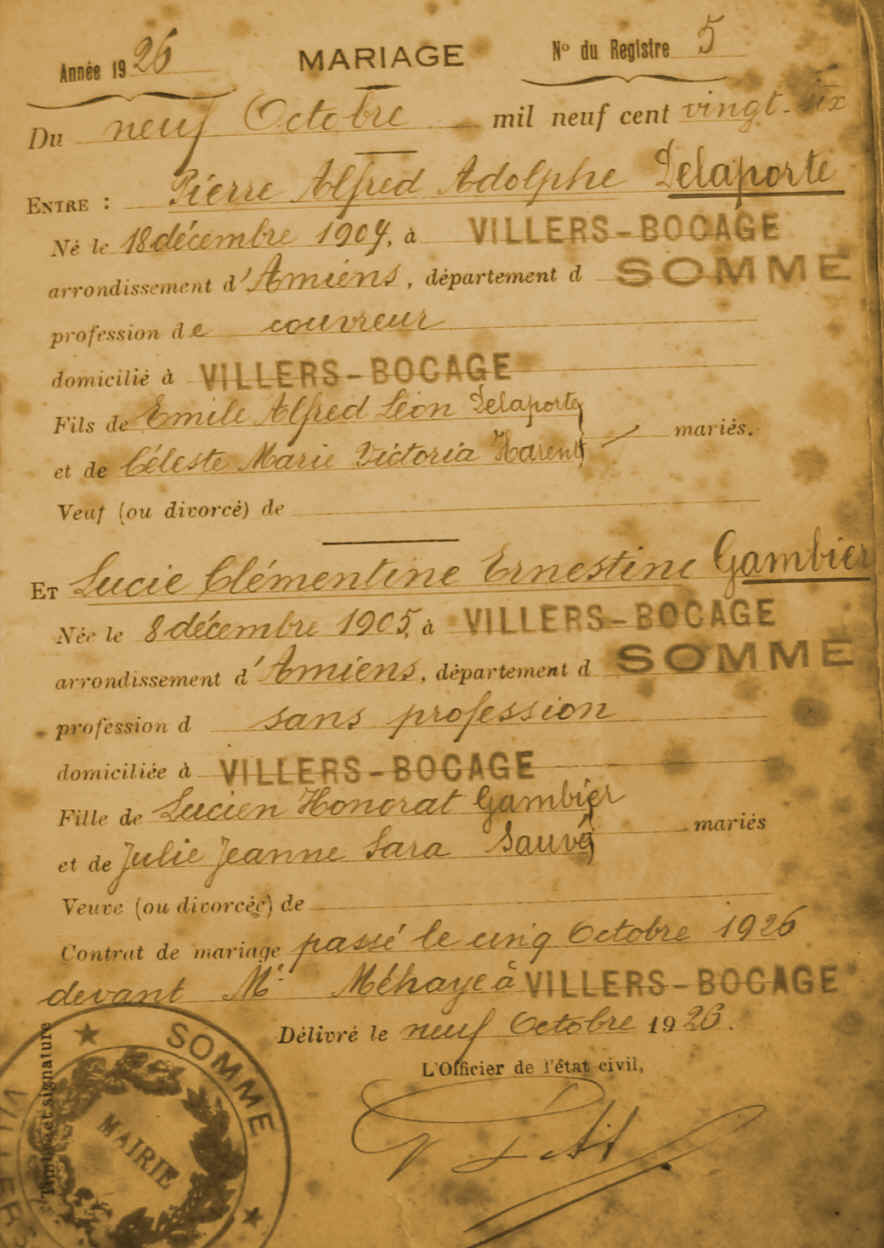 Année 1926
MARIAGE
N° du Registre 5
Du neuf Octobre mil neuf cent vingt-six
ENTRE : Pierre Alfred Adolphe Delaporte
Né le 18 décembre 1904, à VILLERS-BOCAGE
arrondissement d'Amiens, département d SOMME
profession de couvreur
domicilié à VILLERS-BOCAGE
Fils de Emile Alfred Léon Delaporte
et de Céleste Marie Victoria Harent mariés.
Veuf (ou divorcé) de
ET Lucie Clémentine Ernestine Gambier
Née le 8 décembre 1905, à VILLERS-BOCAGE
arrondissement d'Amiens, département d SOMME
profession d sans profession
domiciliée à VILLERS-BOCAGE
Fille de Lucien Honorat Gambier
et de Julie Jeanne Sara Sauvé mariés
Veuve (ou divorcée) de
Contrat de mariage passé le cinq Octobre 1926
devant Me Méhaye à VILLERS-BOCAGE
Délivré le neuf Octobre 1926.
L'Officier de l'état civil,
Timbre et signature
SOMME
MAIRIE
VILLERS